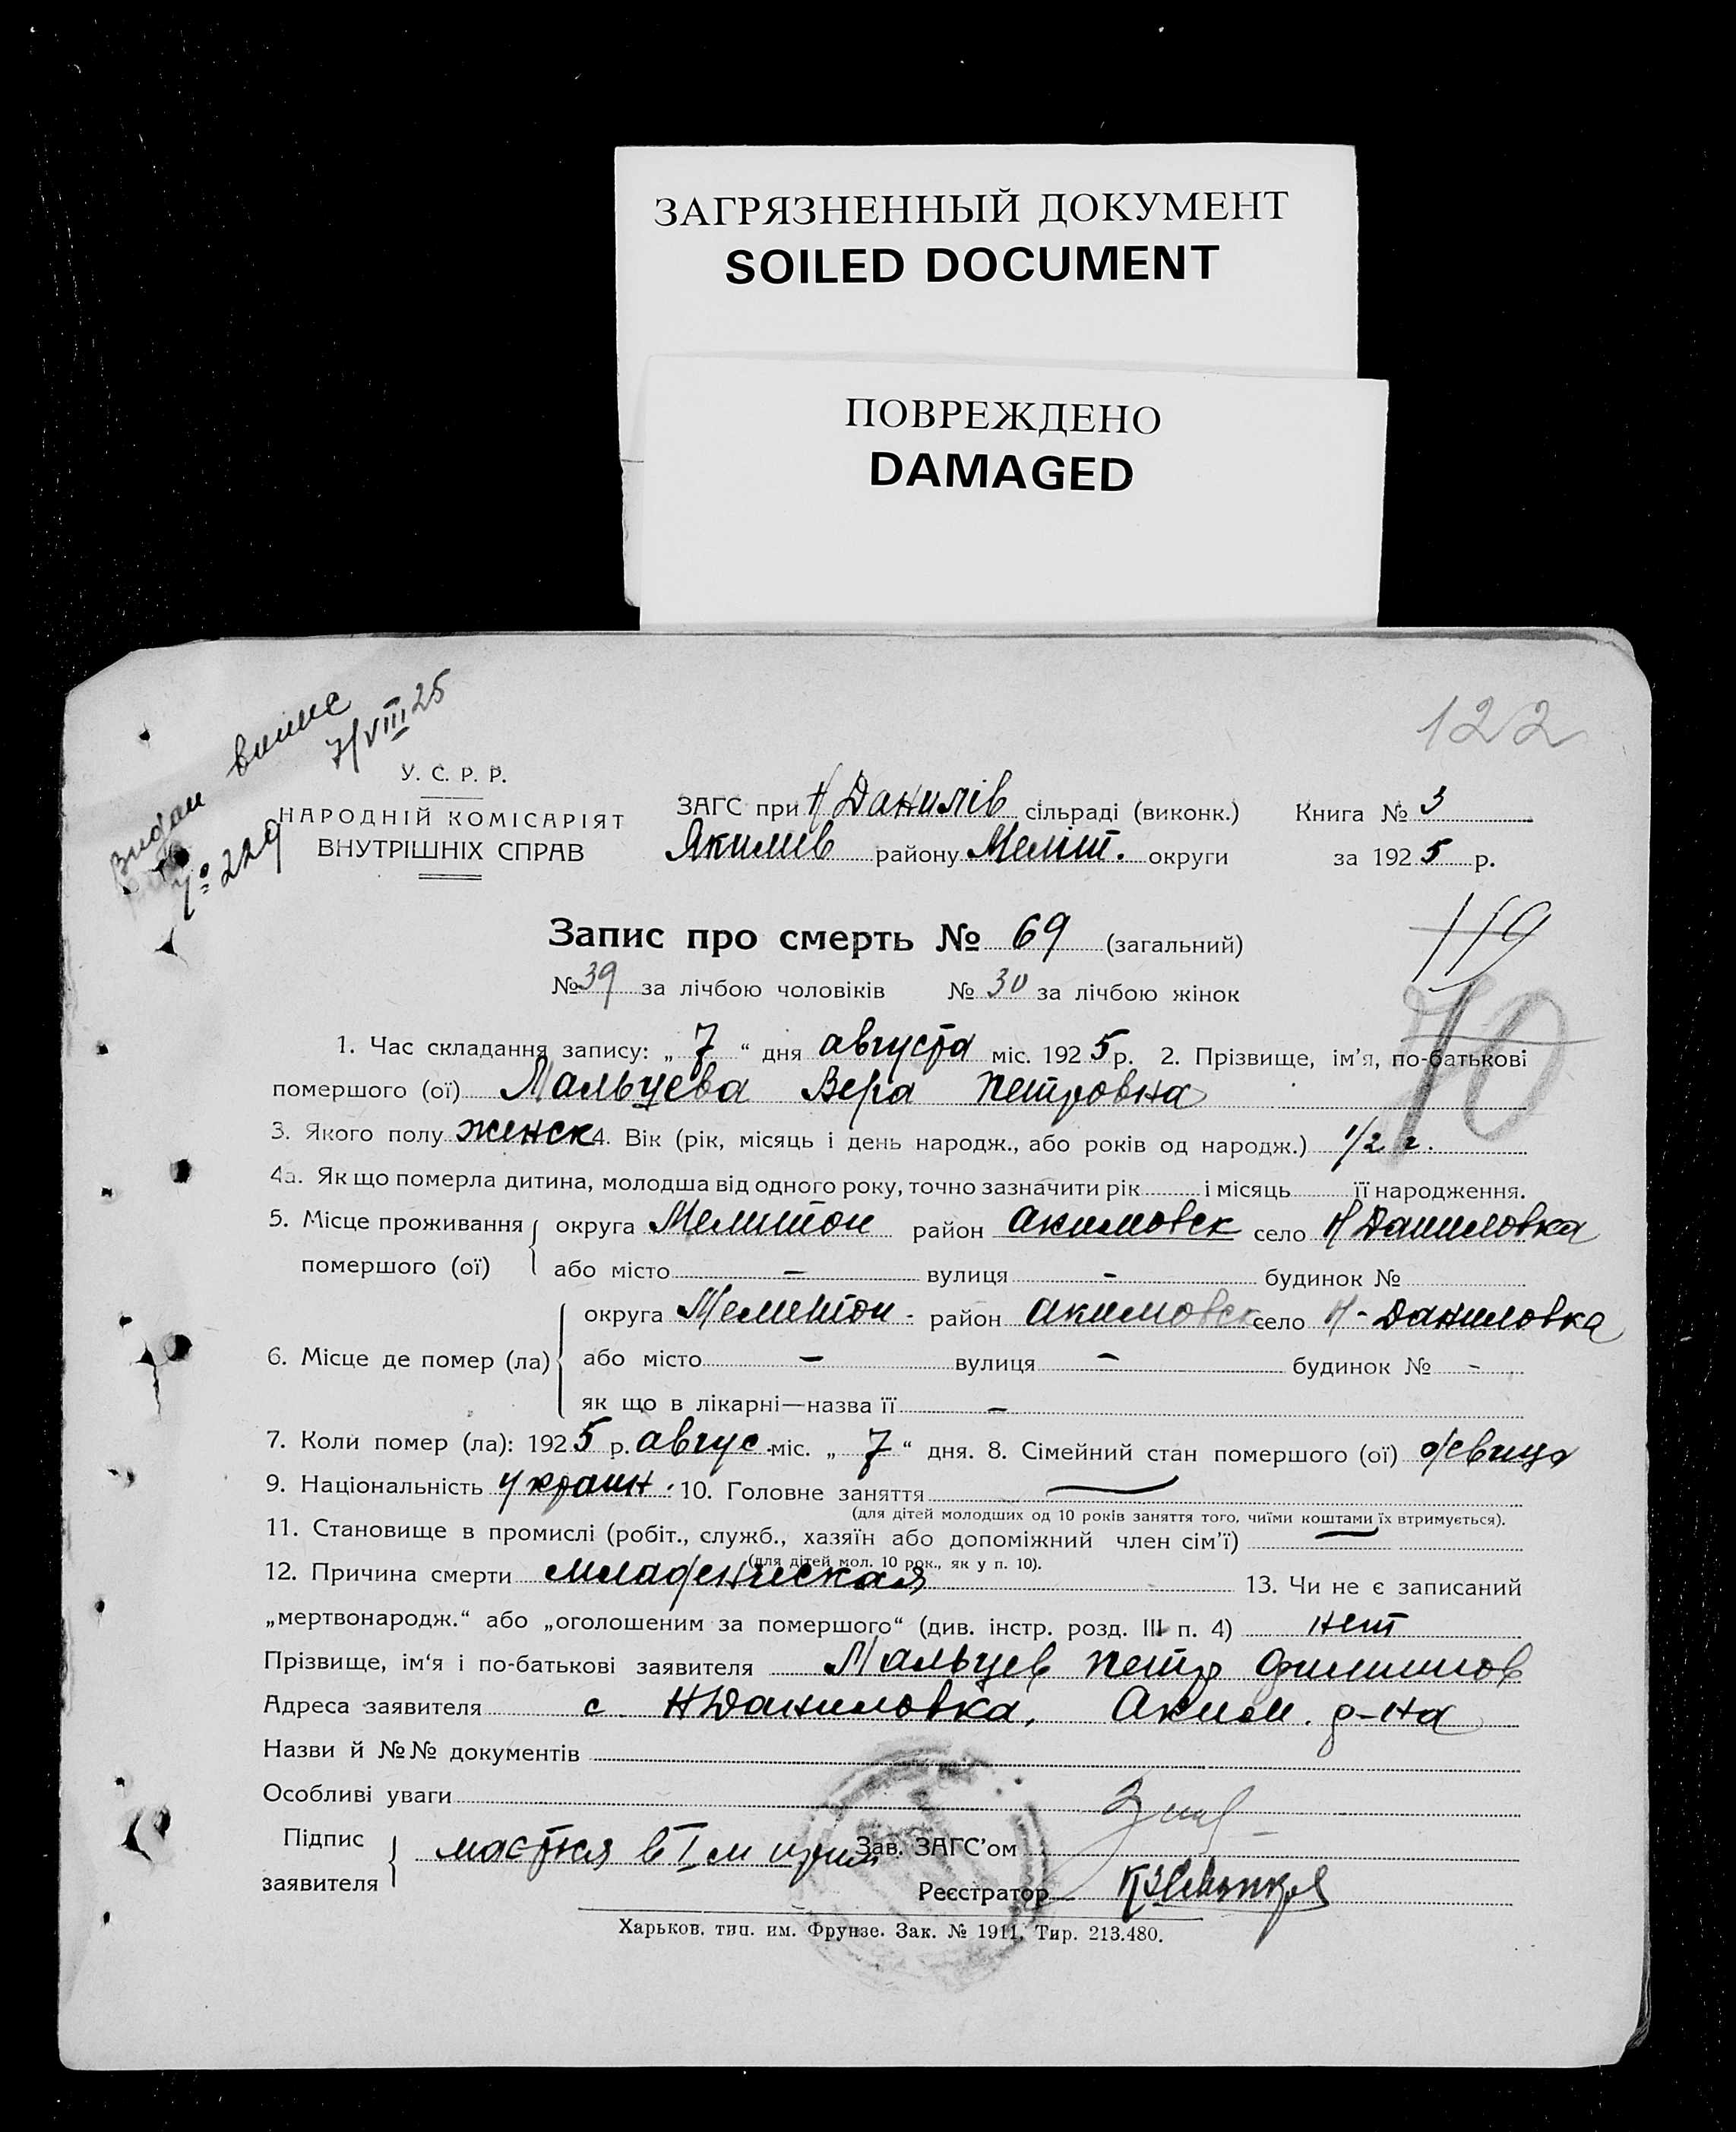 ЗАГРЯЗНЕННЫЙ ДОКУМЕНТ
SOILED DOCUMENT
ПОВРЕЖДЕНО
DAMAGED
122
Видан випис
7/VIII 25
№ 229
У. С. Р. Р.
НАРОДНІЙ КОМІСАРІЯТ
ВНУТРІШНІХ СПРАВ
ЗАГС при Н Данилів сільраді (виконк.) Книга № 3
Якимів району Меліт. округи за 1925 р.
119
Запис про смерть № 69 (загальний)
№ 39 за лічбою чоловіків № 30 за лічбою жінок
70
1. Час складання запису: „ 7 “ дня августа міс. 1925 р. 2. Прізвище, ім’я, по-батькові
помершого (ої) Мальцева Вера Петровна
3. Якого полу женск 4. Вік (рік, місяць і день народж., або років од народж.) 1/2 г.
4а. Як що померла дитина, молодша від одного року, точно зазначити рік і місяць її народження.
5. Місце проживання округа Мелитоп район Акимовск село Н Даниловка
помершого (ої) або місто – вулиця – будинок №
округа Мелитоп - район Акимовск село Н-Даниловка
6. Місце де помер (ла) або місто – вулиця – будинок № -
як що в лікарні—назва її –
7. Коли помер (ла): 1925 р. авгус міс. „ 7 “ дня. 8. Сімейний стан помершого (ої) девица
9. Національність Украин. 10. Головне заняття —
(для дітей молодших од 10 років заняття того, чиїми коштами їх втримується).
11. Становище в промислі (робіт., служб., хазяїн або допоміжний член сім’ї) —
(для дітей мол. 10 рок., як у п. 10).
12. Причина смерти младенческая 13. Чи не є записаний
„мертвонародж.“ або „оголошеним за помершого“ (див. інстр. розд. III п. 4) нет
Прізвище, ім‘я і по-батькові заявителя Мальцев Петр Филиппов
Адреса заявителя с Н Даниловка, Аким. р-на
Назви й №№ документів
Особливі уваги
Підпис
заявителя
мается в I м
Зав. ЗАГС’ом
Реєстратор
Харьков. тип. им. Фрунзе. Зак. № 1911. Тир. 213.480.